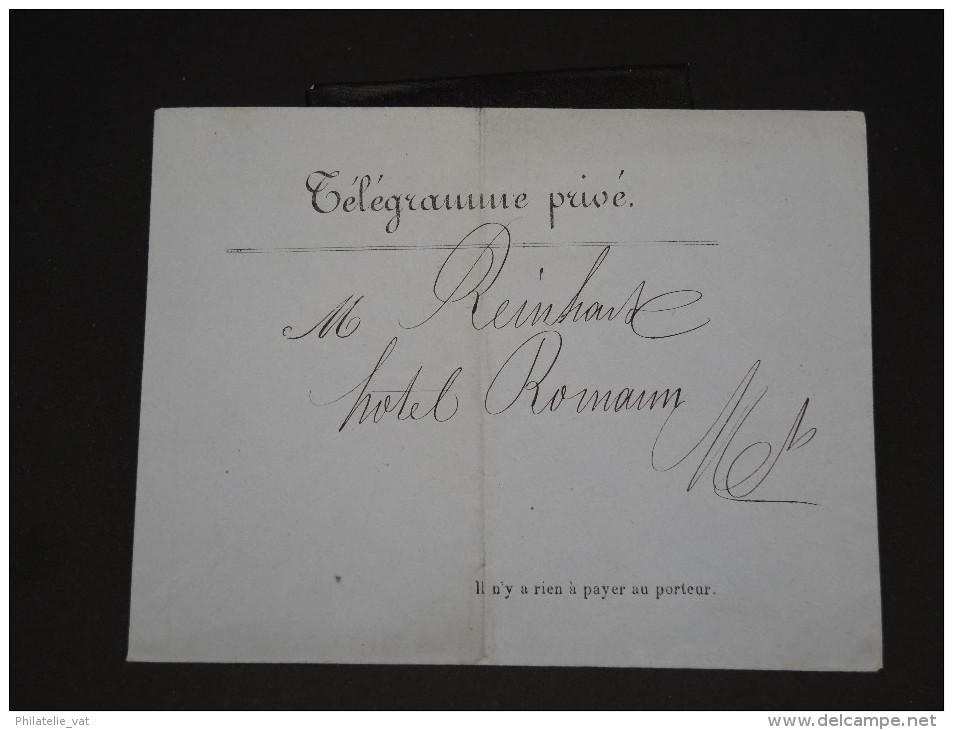 Télégramme privé.
M Reinhart
hotel Romann
Il n'y a rien à payer au porteur.
Philatelie_vat
www.delcampe.net